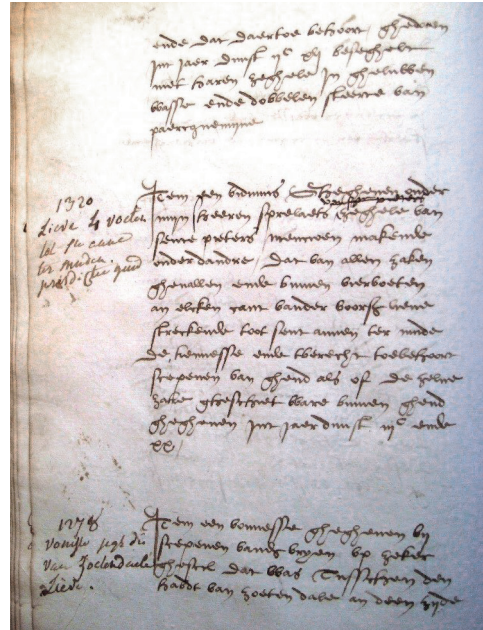 ende dat daertoe behoort ghegheven
int jaer dunst ijc xlj beseghelt
met haren zeghele in gheluwen
wasse ende dobbelen steerte van
paerrgnemijne
1320
Lieve 4 voeten
tot Ste anne
ter muden
Item een vidimus Ghegheven onder
mijn heeren sprelaets zeghele van
sente pieters mencioen makende
onder dandre dat van allen zaken
ghevallen ende binnen viervoeten
an elcken cant vander voorss lieve
streckende toot sent annen ter mude
De kennesse ende trecht toebehoort
scepenen van ghend als of de zelve
zake ghesciet ware binnen ghend
ghegheven int jaer dunst iijc ende
xx
1278
vonnisse
van Zoetendaele
Lieve.
Item een vonnesse ghegheven bij
scepenen vanden vryen up zeker
ghescil dat was Tusschen den
hoodt van zoeten dale an deen zijde